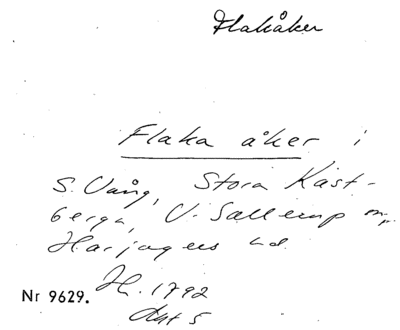 Flakåker
Flaka åker i
S. Vång, Stora Käst-
berga, V. Sallerup
Harjagers hd
H. 1792
Akt 5
Nr 9629.